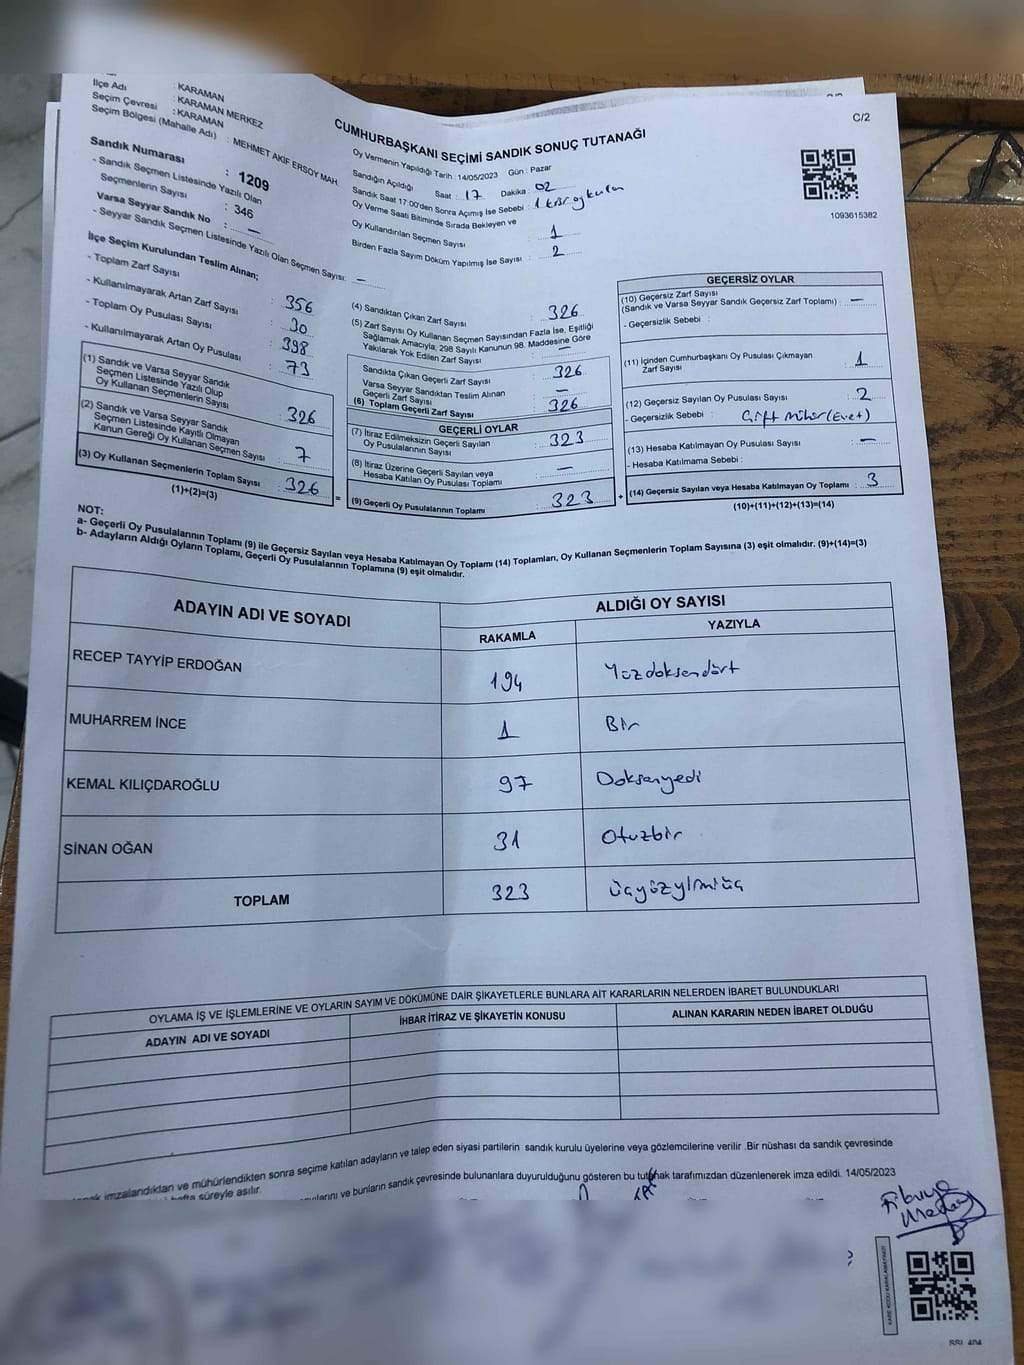 İlçe Adı : KARAMAN
Seçim Çevresi : KARAMAN MERKEZ
Seçim Bölgesi (Mahalle Adı) : KARAMAN
: MEHMET AKİF ERSOY MAH.
Sandık Numarası : 1209
- Sandık Seçmen Listesinde Yazılı Olan
Seçmenlerin Sayısı : 346
Varsa Seyyar Sandık No : —
- Seyyar Sandık Seçmen Listesinde Yazılı Olan Seçmen Sayısı: —
CUMHURBAŞKANI SEÇİMİ SANDIK SONUÇ TUTANAĞI
C/2
Oy Vermenin Yapıldığı Tarih : 14/05/2023 Gün : Pazar
Sandığın Açıldığı Saat : 17 Dakika : 02
Sandık Saat 17:00'den Sonra Açımış İse Sebebi :
Oy Verme Saati Bitiminde Sırada Bekleyen ve
Oy Kullandırılan Seçmen Sayısı : 1
Birden Fazla Sayım Döküm Yapılmış İse Sayısı : 2
1093615382
İlçe Seçim Kurulundan Teslim Alınan;
- Toplam Zarf Sayısı : 356
- Kullanılmayarak Artan Zarf Sayısı : 30
- Toplam Oy Pusulası Sayısı : 398
- Kullanılmayarak Artan Oy Pusulası : 73
(1) Sandık ve Varsa Seyyar Sandık
Seçmen Listesinde Yazılı Olup
Oy Kullanan Seçmenlerin Sayısı : 326
(2) Sandık ve Varsa Seyyar Sandık
Seçmen Listesinde Kayıtlı Olmayan
Kanun Gereği Oy Kullanan Seçmen Sayısı : 7
(3) Oy Kullanan Seçmenlerin Toplam Sayısı : 326
(1)+(2)=(3)
(4) Sandıktan Çıkan Zarf Sayısı : 326
(5) Zarf Sayısı Oy Kullanan Seçmen Sayısından Fazla İse, Eşitliği
Sağlamak Amacıyla; 298 Sayılı Kanunun 98. Maddesine Göre
Yakılarak Yok Edilen Zarf Sayısı : —
Sandıkta Çıkan Geçerli Zarf Sayısı : 326
Varsa Seyyar Sandıktan Teslim Alınan
Geçerli Zarf Sayısı : —
(6) Toplam Geçerli Zarf Sayısı : 326
GEÇERLİ OYLAR
(7) İtiraz Edilmeksizin Geçerli Sayılan
Oy Pusulalarının Sayısı : 323
(8) İtiraz Üzerine Geçerli Sayılan veya
Hesaba Katılan Oy Pusulası Toplamı : —
= (9) Geçerli Oy Pusulalarının Toplamı : 323 +
GEÇERSİZ OYLAR
(10) Geçersiz Zarf Sayısı
(Sandık ve Varsa Seyyar Sandık Geçersiz Zarf Toplamı) : —
- Geçersizlik Sebebi :
(11) İçinden Cumhurbaşkanı Oy Pusulası Çıkmayan
Zarf Sayısı : 1
(12) Geçersiz Sayılan Oy Pusulası Sayısı : 2
- Geçersizlik Sebebi : Çift mühür (Evet)
(13) Hesaba Katılmayan Oy Pusulası Sayısı : —
- Hesaba Katılmama Sebebi :
(14) Geçersiz Sayılan veya Hesaba Katılmayan Oy Toplamı : 3
(10)+(11)+(12)+(13)=(14)
NOT:
a- Geçerli Oy Pusulalarının Toplamı (9) ile Geçersiz Sayılan veya Hesaba Katılmayan Oy Toplamı (14) Toplamları, Oy Kullanan Seçmenlerin Toplam Sayısına (3) eşit olmalıdır. (9)+(14)=(3)
b- Adayların Aldığı Oyların Toplamı, Geçerli Oy Pusulalarının Toplamına (9) eşit olmalıdır.
ADAYIN ADI VE SOYADI
ALDIĞI OY SAYISI
RAKAMLA YAZIYLA
RECEP TAYYİP ERDOĞAN 194 Yüzdoksandört
MUHARREM İNCE 1 Bir
KEMAL KILIÇDAROĞLU 97 Doksanyedi
SİNAN OĞAN 31 Otuzbir
TOPLAM 323 üçyüzyirmiüç
OYLAMA İŞ VE İŞLEMLERİNE VE OYLARIN SAYIM VE DÖKÜMÜNE DAİR ŞİKAYETLERLE BUNLARA AİT KARARLARIN NELERDEN İBARET BULUNDUKLARI
ADAYIN ADI VE SOYADI İHBAR İTİRAZ VE ŞİKAYETİN KONUSU ALINAN KARARIN NEDEN İBARET OLDUĞU
imzalandıktan ve mühürlendikten sonra seçime katılan adayların ve talep eden siyasi partilerin sandık kurulu üyelerine veya gözlemcilerine verilir .Bir nüshası da sandık çevresinde
hafta süreyle asılır.
ve bunların sandık çevresinde bulunanlara duyurulduğunu gösteren bu tutanak tarafımızdan düzenlenerek imza edildi. 14/05/2023
KARE KODU KARALAMAYINIZ!